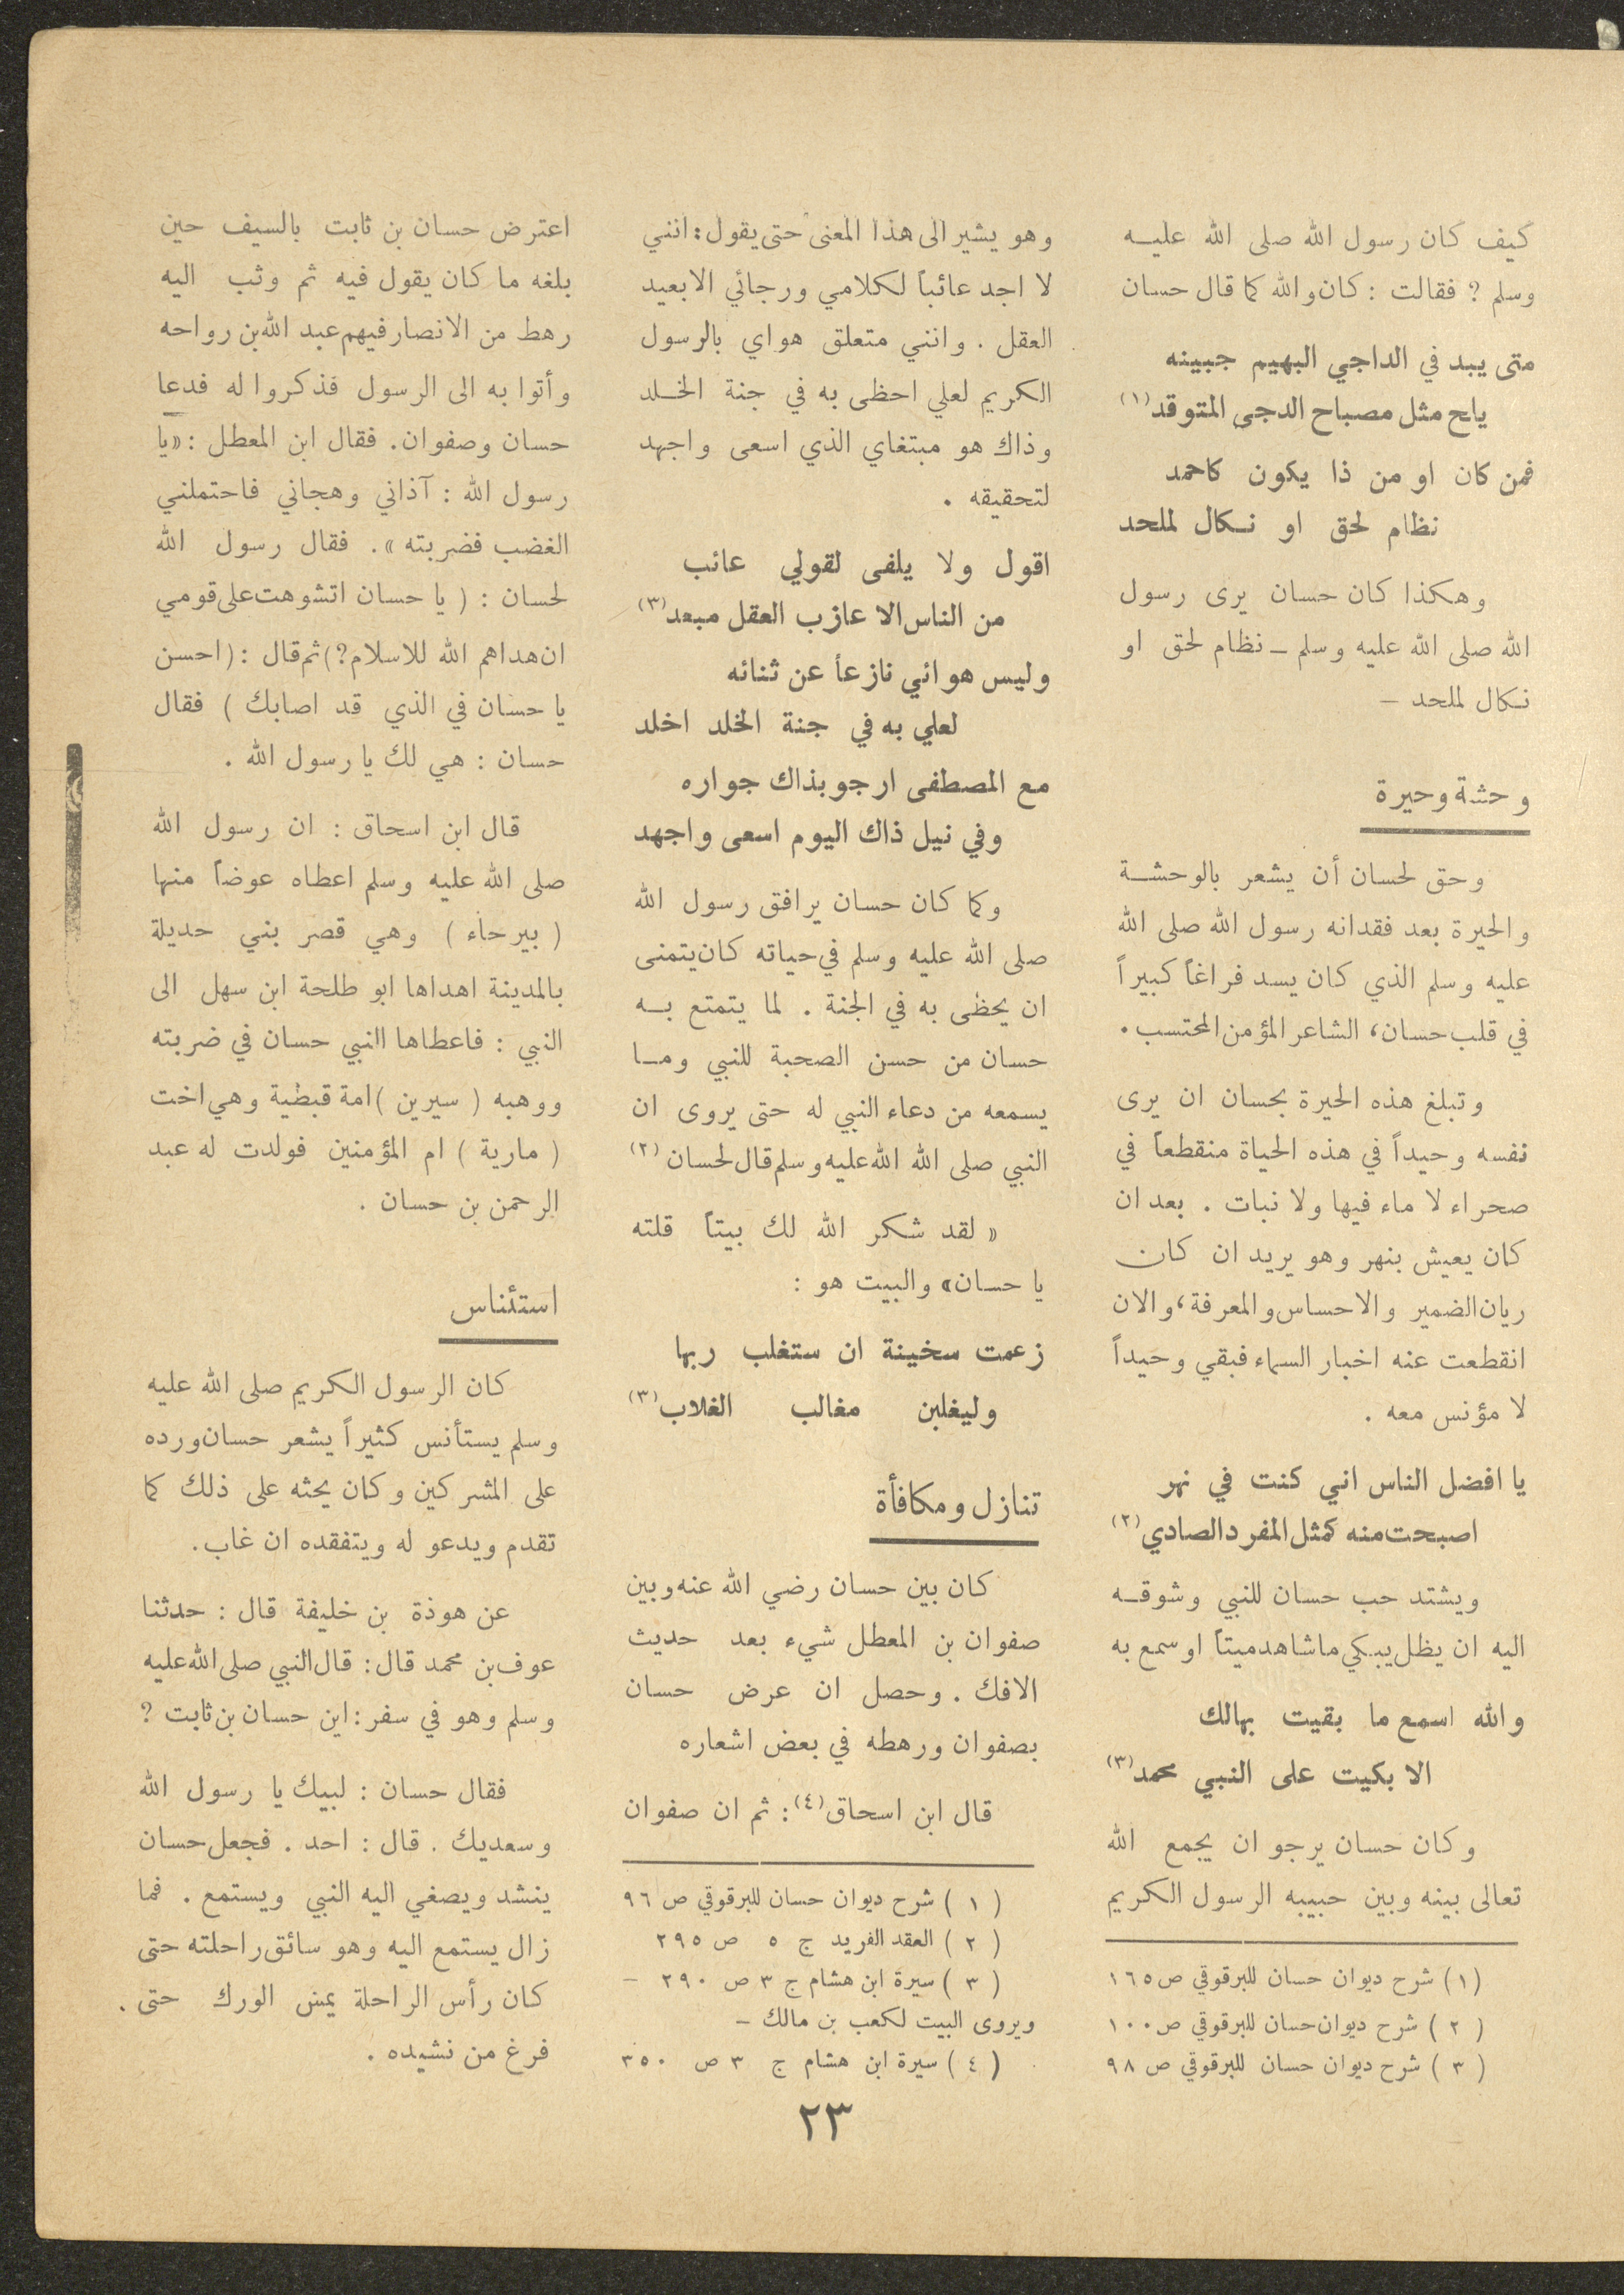 كيف كان رسول الله صلى الله عليه
وسلم ? فقالت : كان والله كما قال حسان
متى يبد في الداجي البهيم جبينه
يلح مثل مصباح الدجى المتوقد (١)
فمن كان او من ذا يكون كاحمد
نظام لحق او نكال لملحد
وهكذا كان حسان يرى رسول
الله صلى الله عليه وسلم – نظام لحق او
نكال لملحد –
وحشة وحيرة
وحق لحسان أن يشعر بالوحشة
والحيرة بعد فقدانه رسول الله صلى الله
عليه وسلم الذي كان يسد فراغاً كبيراً
في قلب حسان، الشاعر المؤمن المحتسب.
وتبلغ هذه الحيرة بحسان ان يرى
نفسه وحيداً في هذه الحياة منقطعاً في
صحراء لا ماء فيها ولا نبات . بعد ان
كان يعيش بنهر وهو يريد ان كان
ريان الضمير والاحساس والمعرفة، والان
انقطعت عنه اخبار السماء فبقي وحيداً
لا مؤنس معه .
يا افضل الناس اني كنت في نهر
اصبحت منه كمثل المفرد الصادي (٢)
ويشتد حب حسان للنبي وشوقه
اليه ان يظل يبكي ما شاهد ميتاً او سمع به
والله اسمع ما بقيت بهالك
الا بكيت على النبي محمد (٣)
وكان حسان يرجو ان يجمع الله
تعالى بينه وبين حبيبه الرسول الكريم
(١) شرح ديوان حسان للبرقوقي ص ١٦٥
(٢) شرح ديوان حسان للبرقوقي ص ١٠٠
(٣) شرح ديوان حسان للبرقوقي ص ٩٨
وهو يشير الى هذا المعنى حتى يقول : انني
لا اجد عائباً لكلامي ورجائي الا بعيد
العقل . وانني متعلق هواي بالرسول
الكريم لعلي احظى به في جنة الخلد
وذاك هو مبتغاي الذي اسعى واجهد
لتحقيقه .
اقول ولا يلفى لقولي عائب
من الناس الا عازب العقل مبعد (٣)
وليس هوائي نازعاً عن ثنائه
لعلي به في جنة الخلد اخلد
مع المصطفى ارجو بذاك جواره
وفي نيل ذاك اليوم اسعى واجهد
وكما كان حسان يرافق رسول الله
صلى الله عليه وسلم في حياته كان يتمنى
ان يحظى به في الجنة . لما يتمتع به
حسان من حسن الصحبة للنبي وما
يسمعه من دعاء النبي له حتى يروى ان
النبي صلى الله الله عليه وسلم قال لحسان (٢)
« لقد شكر الله لك بيتاً قلته
يا حسان» والبيت هو :
زعمت سخينة ان ستغلب ربها
وليغلبن مغالب الغلاب (٣)
تنازل ومكافأة
كان بين حسان رضي الله عنه وبين
صفوان بن المعطل شيء بعد حديث
الافك . وحصل ان عرض حسان
بصفوان ورهطه في بعض اشعاره
قال ابن اسحاق (٤) : ثم ان صفوان
(١) شرح ديوان حسان للبرقوقي ص ٩٦
(٢) العقد الفريد ج ٥ ص ٢٩٥
(٣) سيرة ابن هشام ج ٣ ص ٢٩٠ –
ويروى البيت لكعب بن مالك –
(٤) سيرة ابن هشام ج ٣ ص ٣٥٠
اعترض حسان بن ثابت بالسيف حين
بلغه ما كان يقول فيه ثم وثب اليه
رهط من الانصار فيهم عبد الله بن رواحه
وأتوا به الى الرسول فذكروا له فدعا
حسان وصفوان. فقال ابن المعطل : «يا
رسول الله : آذاني وهجاني فاحتملني
الغضب فضربته ». فقال رسول الله
لحسان : ( يا حسان اتشوهت على قومي
ان هداهم الله للاسلام?) ثم قال : (احسن
يا حسان في الذي قد اصابك ) فقال
حسان : هي لك يا رسول الله .
قال ابن اسحاق : ان رسول الله
صلى الله عليه وسلم اعطاه عوضاً منها
( بيرحاء ) وهي قصر بني حديلة
بالمدينة اهداها ابو طلحة ابن سهل الى
النبي : فاعطاها النبي حسان في ضربته
ووهبه ( سيرين ) امة قبطية وهي اخت
( مارية ) ام المؤمنين فولدت له عبد
الرحمن بن حسان .
استئناس
كان الرسول الكريم صلى الله عليه
وسلم يستأنس كثيراً يشعر حسان ورده
على المشركين وكان يحثه على ذلك كما
تقدم ويدعو له ويتفقده ان غاب.
عن هوذة بن خليفة قال : حدثنا
عوف بن محمد قال: قال النبي صلى الله عليه
وسلم وهو في سفر: اين حسان بن ثابت ?
فقال حسان : لبيك يا رسول الله
وسعديك . قال : احد . فجعل حسان
ينشد ويصغي اليه النبي ويستمع . فما
زال يستمع اليه وهو سائق راحلته حتى
كان رأس الراحلة يمس الورك حتى .
فرغ من نشيده .
٢٣